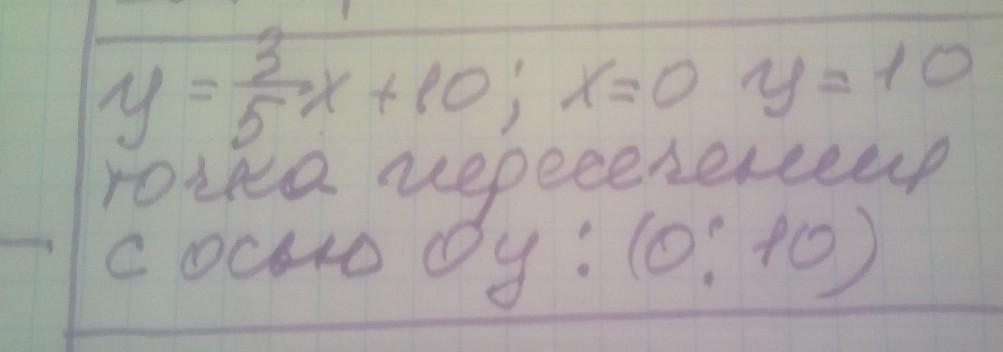 y = 3/5 x + 10; x = 0 y = 10
точка пересечения
с осью Оу : (0; 10)